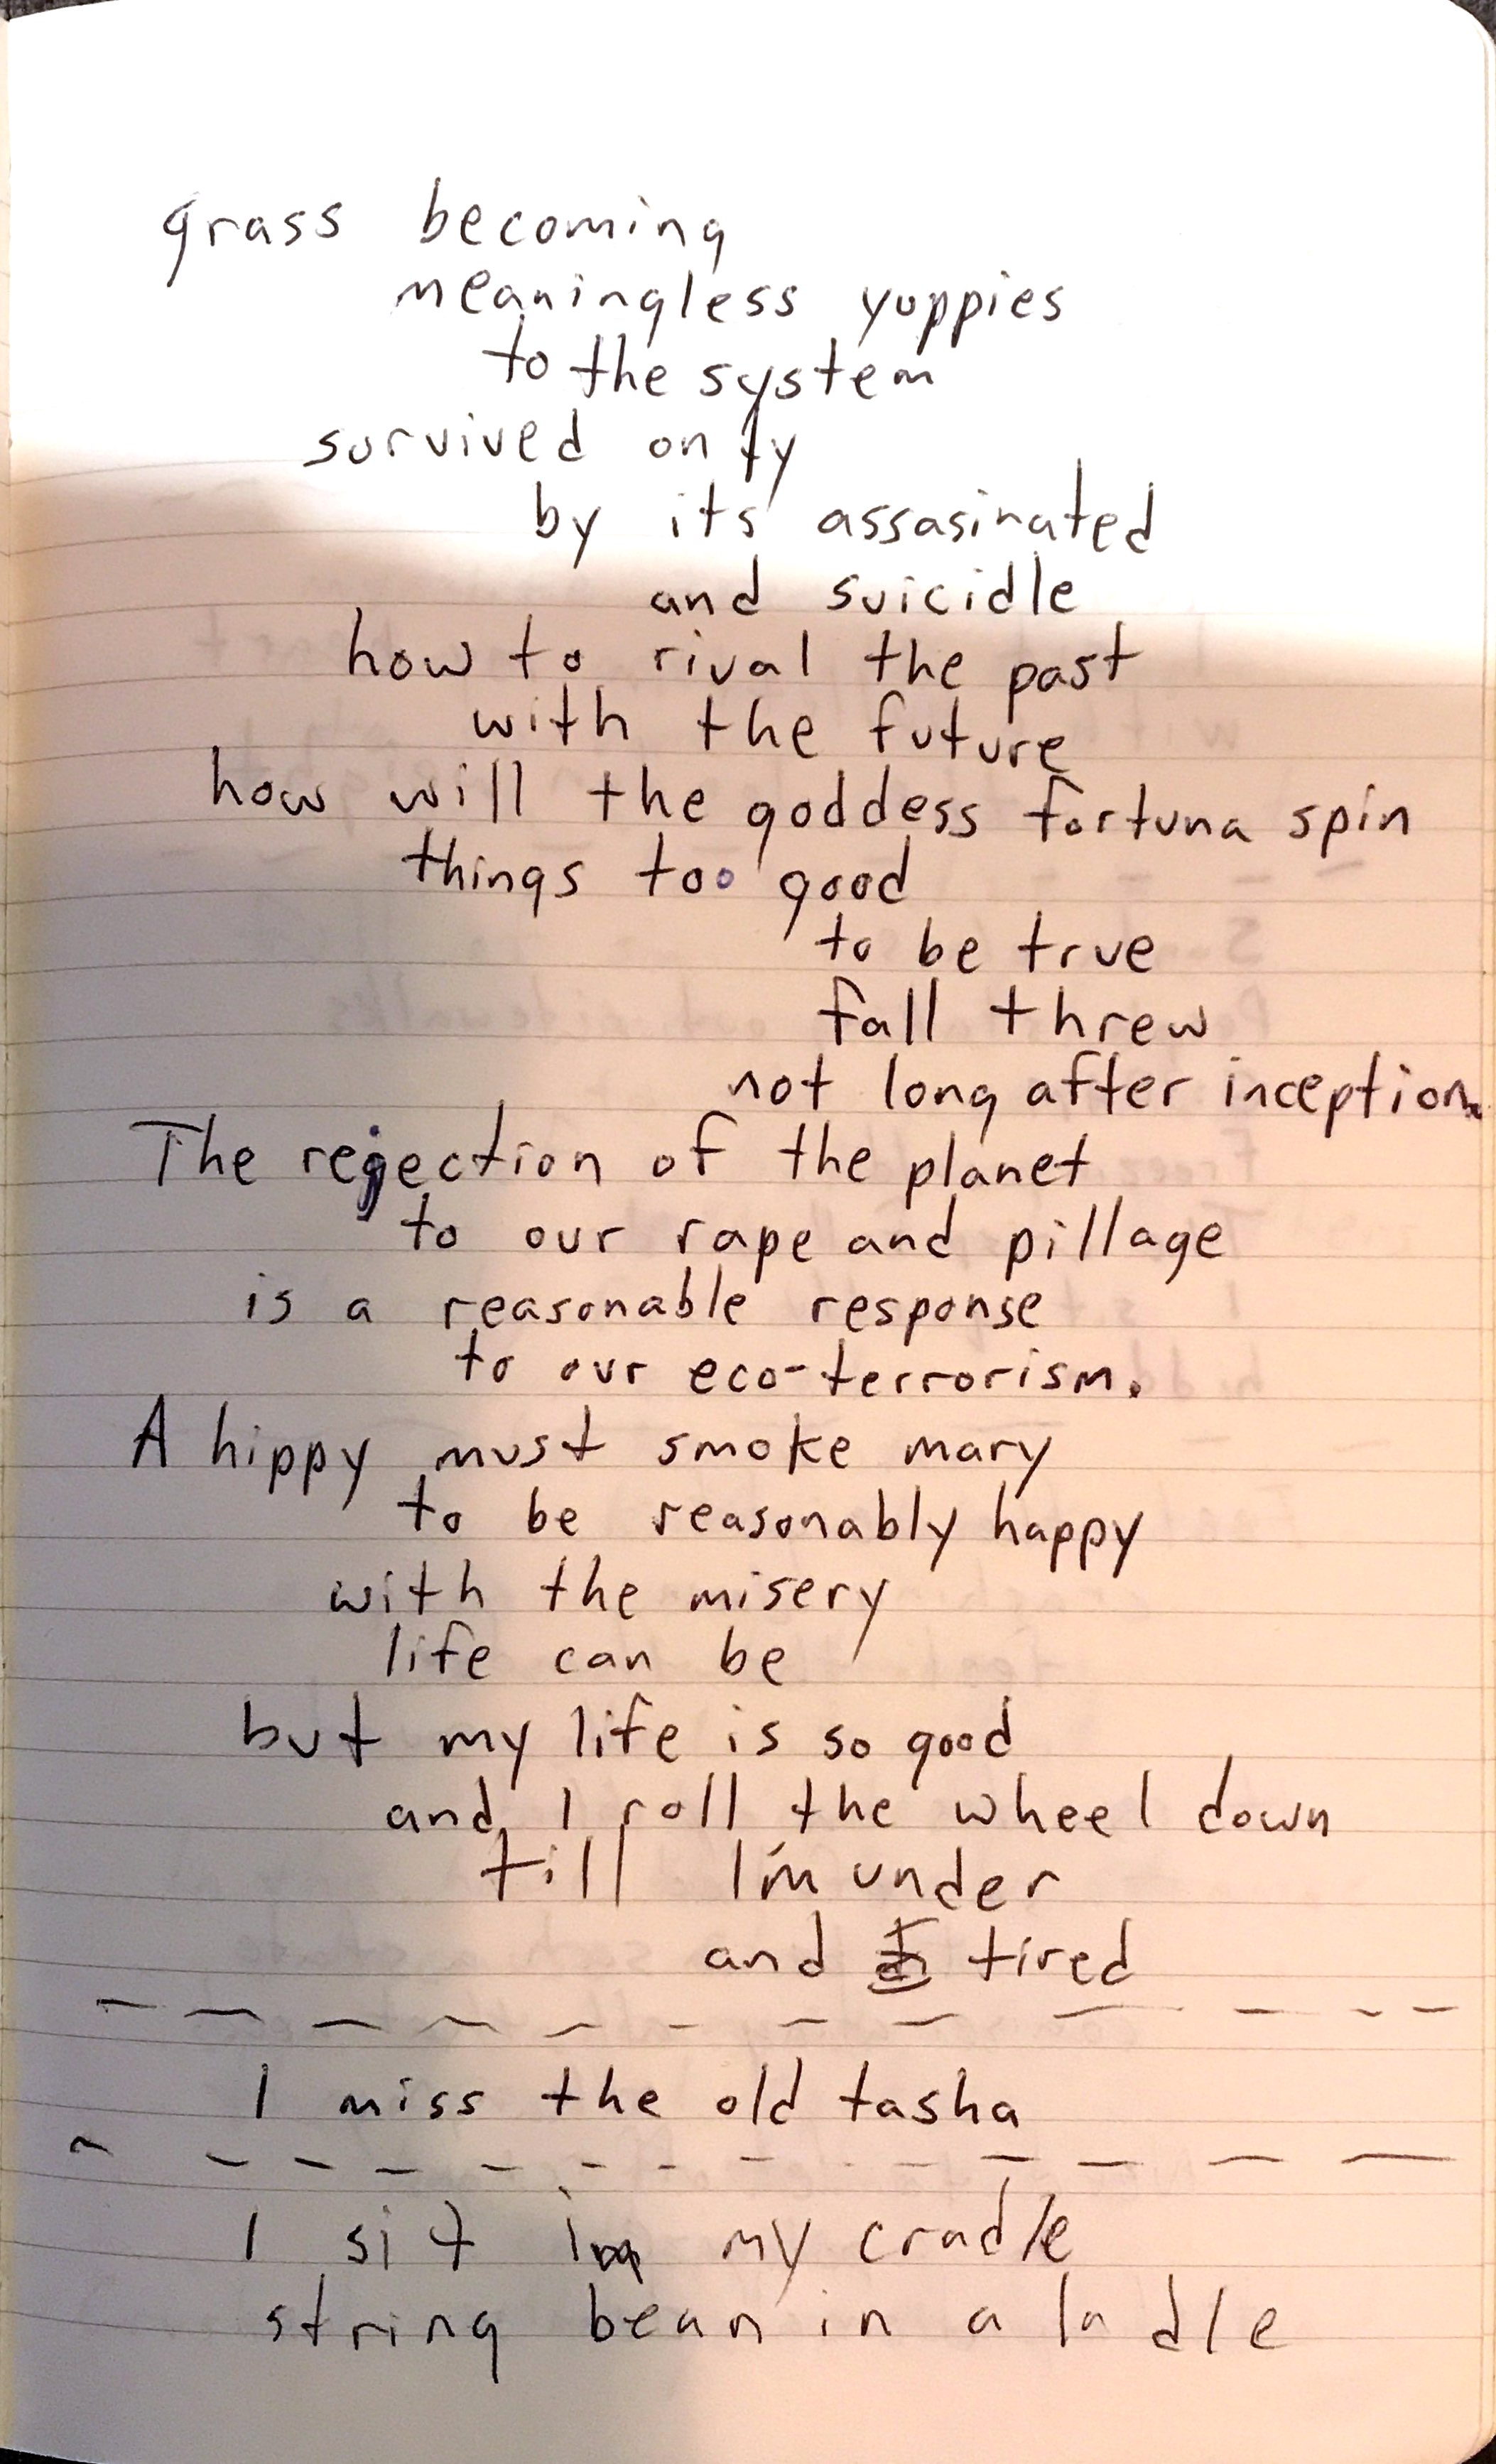 grass becoming
meaningless yuppies
to the system
survived only
by its assasinated
and suicidle
how to rival the past
with the future
how will the goddess fortuna spin
things too good
to be true
fall threw
not long after inception.
The rejection of the planet
to our rape and pillage
is a reasonable response
to our eco-terrorism.
A hippy must smoke mary
to be reasonably happy
with the misery
life can be
but my life is so good
and I roll the wheel down
till I'm under
and tired
I miss the old tasha
I sit in my cradle
string bean in a ladle